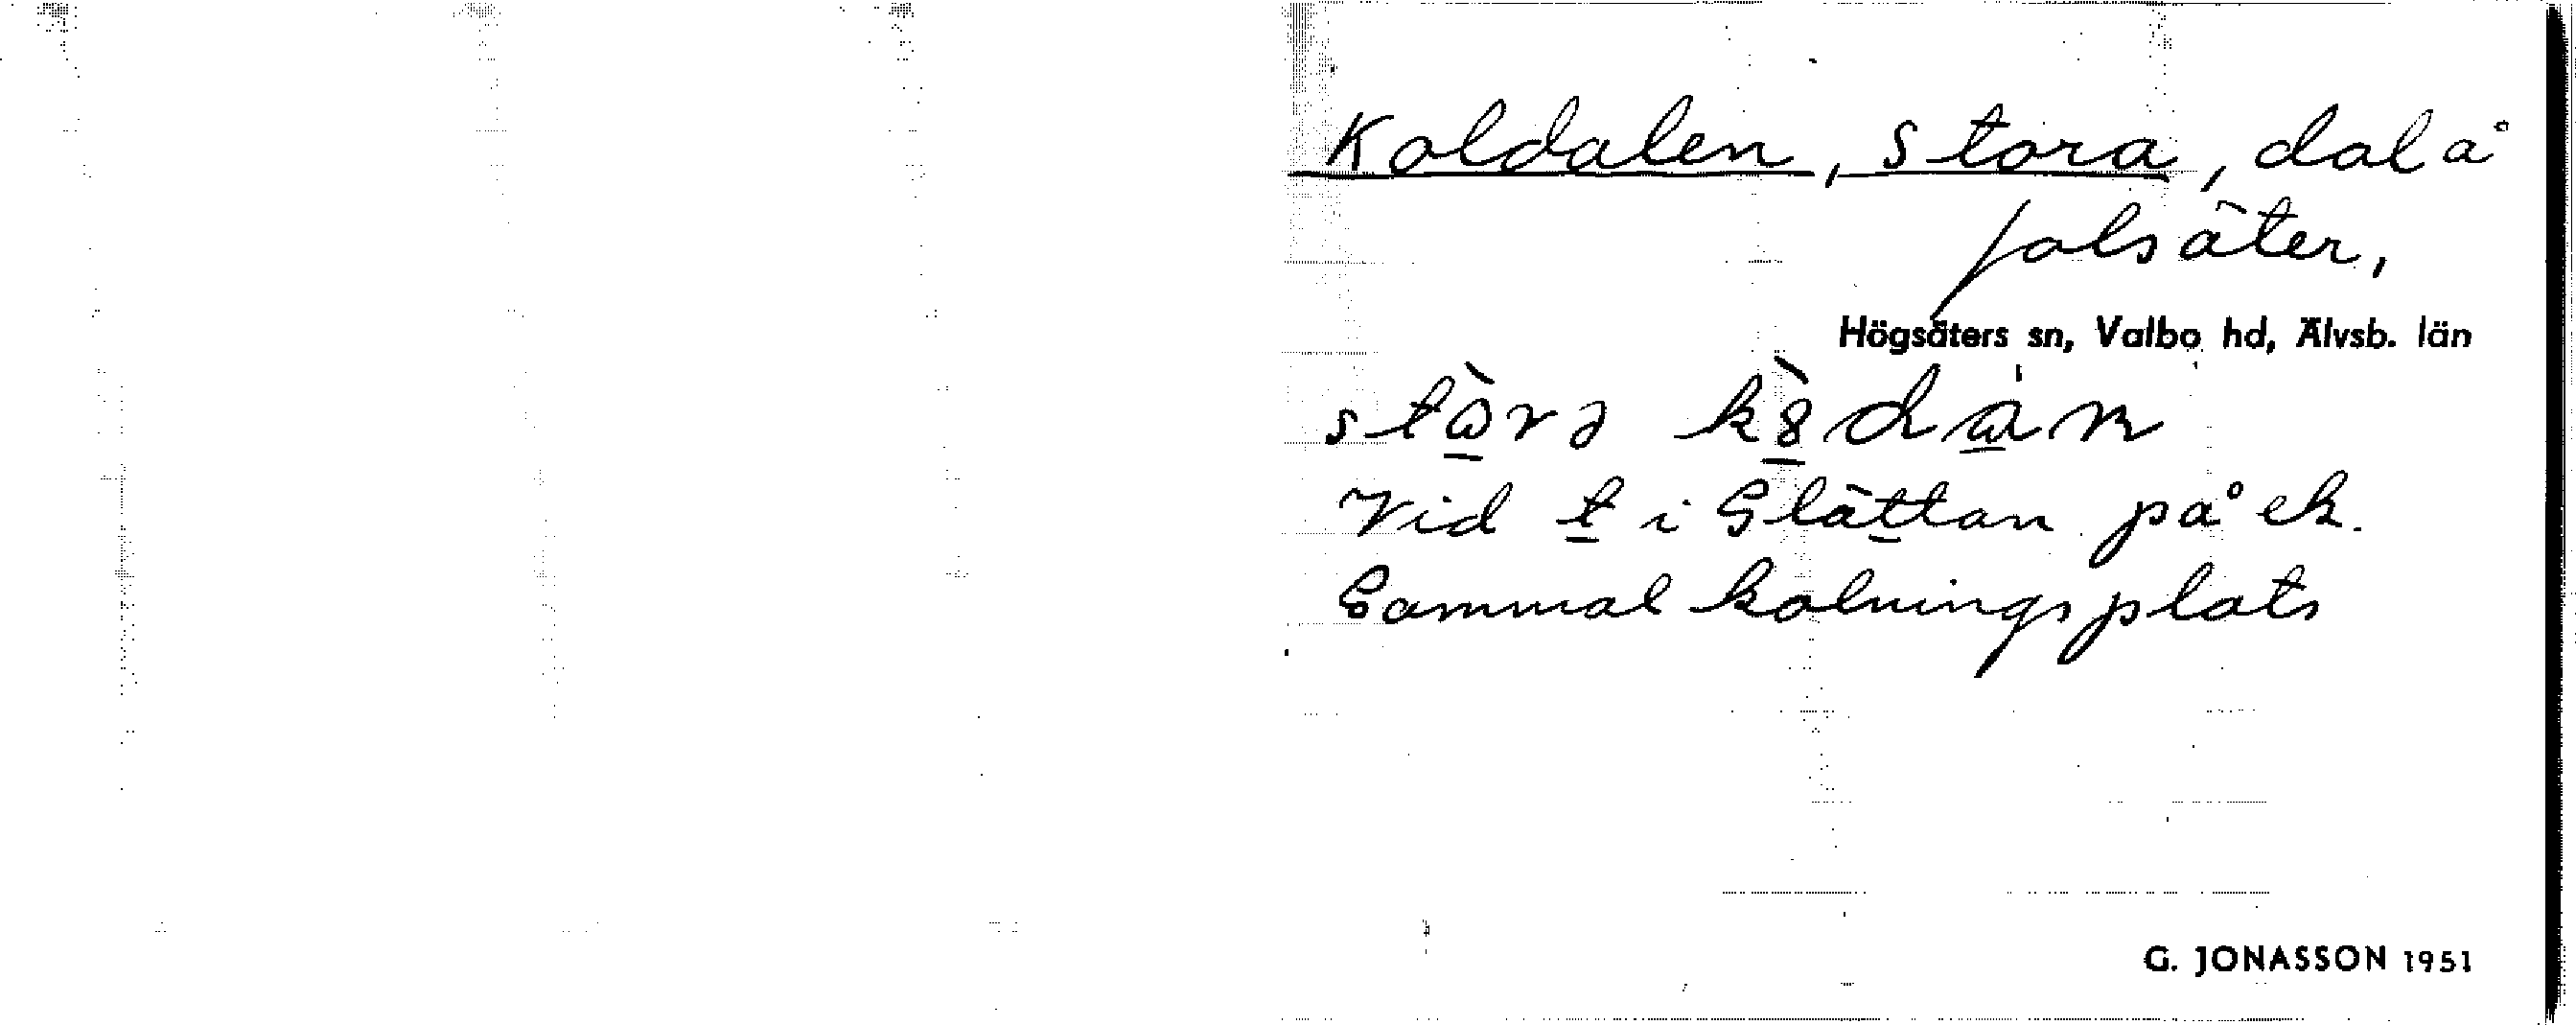 Koldalen, Stora, dal å
Jolsäter,
Högsäters sn, Valbo hd, Älvsb. län
Vid t i Glättan på ek.
Gammal kolningsplats
G. JONASSON 1951